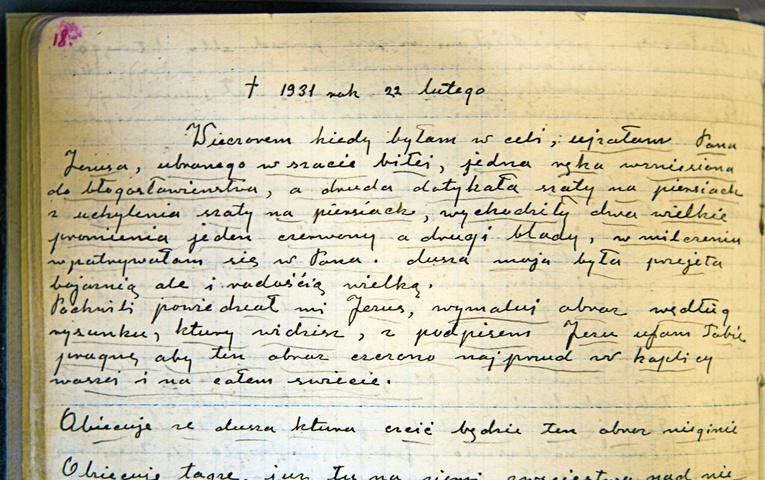 18.
† 1931 rok 22 lutego
Wieczorem kiedy byłam w celi, ujrzałam Pana
Jezusa, ubranego w szacie biłei, jedna ręka wzniesiona
do błogosławienstwa, a druda dotykała szaty na piersiach
z uchylenia szaty na piersiach, wychodziły dwa wielkie
promienia jeden czerwony a drugi blady, w milczeniu
wpatrywałam się w Pana. dusza moja była przejęta
bojaznią ale i radością wielką.
Pochwili powiedział mi Jezus, wymaluj obraz według
rysunku, ktury widzisz, z podpisem Jezu ufam Tobie
pragnę aby ten obraz czczono najprzud w kaplicy
waszej i na całem swiecie.
Obiecuje ze dusza ktura czcić będzie ten obraz nieginie
Obiecuje tagze, juz tu na ziemi zwyciestwo nad nie